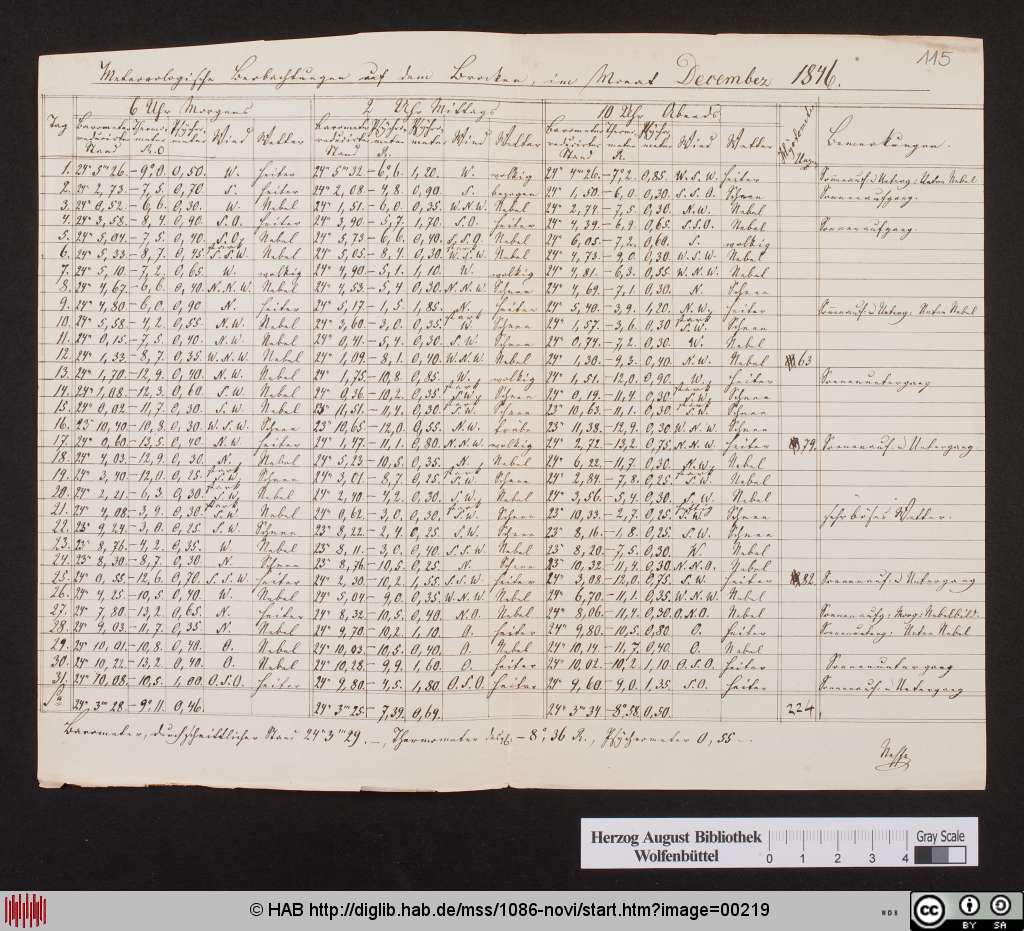 115
Meteorologische Beobachtungen auf dem Brocken, im Monat December 1846.
Tag 6 Uhr Morgens 2 Uhr Mittags 10 Uhr Abends Hydrometer Bemerkungen.
Barometer reducirter Stand Thermometer R. Psychrometer Wind Wetter Barometer reducirter Stand R. Psychrometer Wind Wetter Barometer reducirter Stand Thermometer R. Psychrometer Wind Wetter
1. 24" 5'''26. -9°0. 0,50. W. heiter 24" 5'''32 -6°6. 1,20. W. wolkig 24" 4'''26. -7°2. 0,85. W.S.W. heiter Sonnenauf- u Unterg: Unten Nebel
2. 24" 2,73. -7,5. 0,70. S. heiter 24" 2,08 -4,8. 0,90. S. bezogen 24" 1,50. -6,0. 0,30. S.S.O. Schnee Sonnenaufgang.
3. 24" 0,52. -6,6. 0,30. W. Nebel 24" 1,51. -6,0. 0,35. W.N.W. Nebel 24" 2,74. -7,5. 0,30. N.W. Nebel
4. 24" 3,58. -8,4. 0,90. S.O. heiter 24" 3,90 -5,7. 1,70. S.O. heiter 24" 4,39. -6,9. 0,65. S.S.O. Nebel Sonnenaufgang.
5. 24" 5,04. -7,5. 0,40. S.O. Nebel 24" 5,73 -6,6. 0,40. S.S.O. Nebel 24" 6,05. -7,2. 0,60. S. wolkig
6. 24" 5,33. -8,7. 0,45. stark S.S.W. Nebel 24" 5,05. -8,4. 0,30. stark W.S.W. Nebel 24" 4,73. -9,0. 0,30. W.S.W. Nebel
7. 24" 5,10 -7,2. 0,65. W. wolkig 24" 4,90 -5,1. 1,10. W. wolkig 24" 4,81. -6,3. 0,55. W.N.W. Nebel
8. 24" 4,67. -6,6. 0,40. N.N.W. Nebel 24" 4,53. -5,4. 0,30. N.N.W. Schnee 24" 4,69. -7,1. 0,30. N. Schnee
9. 24" 4,80 -6,0. 0,90 N. heiter 24" 5,17. -1,5. 1,85. N. heiter 24" 5,40. -3,9. 1,20. N.W. heiter Sonnenauf- u Unterg: Unten Nebel
10. 24" 5,58. -4,2. 0,55. N.W. Nebel 24" 3,60. -3,0. 0,35. stark W. Schnee 24" 1,57. -3,6. 0,30 stark S.W. Schnee
11. 24" 0,15. -7,5. 0,40. N.W. Nebel 24" 0,41. -5,4. 0,30. S.W. Schnee 24" 0,74. -7,2. 0,30. W. Nebel
12. 24" 1,33. -8,7. 0,35. W.N.W. Nebel 24" 1,09. -8,1. 0,40. W.N.W. Nebel 24" 1,30. -9,3. 0,40. N.W. Nebel 63
13. 24" 1,70. -12,9. 0,40. N.W. Nebel 24" 1,75. -10,8. 0,85. W. wolkig 24" 1,51. -12,0. 0,90. W. heiter Sonnenuntergang
14. 24" 1,08. -12,3. 0,60. S.W. Nebel 24" 0,36. -10,2. 0,35. stark S.W. Schnee 24" 0,19. -11,4. 0,30. stark S.W. Schnee
15. 24" 0,02. -11,7. 0,30. S.W. Nebel 23" 11,51. -11,4. 0,30. stark S.W. Schnee 23" 10,63. -11,1. 0,30. stark S.W. Schnee
16. 23" 10,40. -10,8. 0,30. W.S.W. Schnee 23" 10,65. -12,0. 0,55. N.W. trübe 23" 11,38. -12,9. 0,30. W.N.W. Schnee
17. 24" 0,60. -13,5. 0,40. N.W. heiter 24" 1,47. -11,1. 0,80. N.N.W. wolkig 24" 2,72. -13,2. 0,75. N.N.W. heiter 79. Sonnenauf- u Untergang.
18. 24" 4,03. -12,9. 0,30. N. Nebel 24" 5,23 -10,5. 0,35. N. Nebel 24" 6,22. -11,7. 0,30. N.W. Nebel
19. 24" 3,40. -12,0. 0,25. stark S.W. Schnee 24" 3,01. -8,7. 0,25. stark S.W. Schnee 24" 2,84. -7,8. 0,25. stark S.W. Nebel
20. 24" 2,21. -6,3. 0,30. stark S.W. Nebel 24" 2,40 -4,2. 0,30. S.W. Nebel 24" 3,56. -5,4. 0,30. S.W. Nebel
21. 24" 4,08. -3,9. 0,30. stark S.W. Nebel 24" 0,62. -3,0. 0,30. stark S.W. Schnee 23" 10,33. -2,7. 0,25. S.W. Schnee sehr böses Wetter.
22. 23" 9,24. -3,0. 0,25. S.W. Schnee 23" 8,22. -2,4. 0,25. S.W. Schnee 23" 8,16. -1,8. 0,25. S.W. Schnee
23. 23" 8,76. -4,2. 0,35. W. Nebel 23" 8,11. -3,0. 0,40. S.S.W. Nebel 23" 8,20. -7,5. 0,30. W. Nebel
24. 23" 8,30. -8,7. 0,30. N. Schnee 23" 8,76 -10,5. 0,25. N. Schnee 23" 10,32 -11,4. 0,30. N.N.O. Nebel
25. 24" 0,55. -12,6. 0,70. S.S.W. heiter 24" 2,30. -10,2. 1,55. S.S.W. heiter 24" 3,08. -12,0. 0,75. S.W. heiter 82. Sonnenauf- u Untergang
26. 24" 4,25. -10,5. 0,40. W. Nebel 24" 5,04 -9,0. 0,35. W.N.W. Nebel 24" 6,70. -11,1. 0,35. W.N.W. Nebel
27. 24" 7,80 -13,2. 0,65. N. heiter 24" 8,32. -10,5. 0,40. N.O. Nebel 24" 8,06. -11,4. 0,30. O.N.O. Nebel Sonnenaufg: Morg: Nebelbild.
28. 24" 9,03. -11,7. 0,35 N. Nebel 24" 9,70. -10,2. 1,10. O. heiter 24" 9,80. -10,5. 0,80 O. heiter Unten Nebel
29. 24" 10,01. -10,8. 0,40. O. Nebel 24" 10,03. -10,5. 0,40. O. Nebel 24" 10,14. -11,7. 0,40. O. Nebel
30. 24" 10,22. -13,2. 0,40. O. Nebel 24" 10,28. -9,9. 1,60. O. heiter 24" 10,02. -10,2. 1,10 O.S.O. heiter Sonnenuntergang
31. 24" 10,08. -10,5. 1,00. O.S.O. heiter 24" 9,80. -4,5. 1,80. O.S.O. heiter 24" 9,60. -9,0. 1,35. S.O. heiter Sonnenauf- u Untergang
24" 3'''28 -9°11. 0,46. 24" 3'''25 -7,39. 0,69. 24" 3'''34 -8°58. 0,50. 224.
Barometer, durchschnittlicher Stand 24" 3'''29. —, Thermometer -8°,36 R., Psychrometer 0,55 —
Nesse
Herzog August Bibliothek
Wolfenbüttel
0 1 2 3 4
Gray Scale
© HAB http://diglib.hab.de/mss/1086-novi/start.htm?image=00219
WDB
cc BY SA